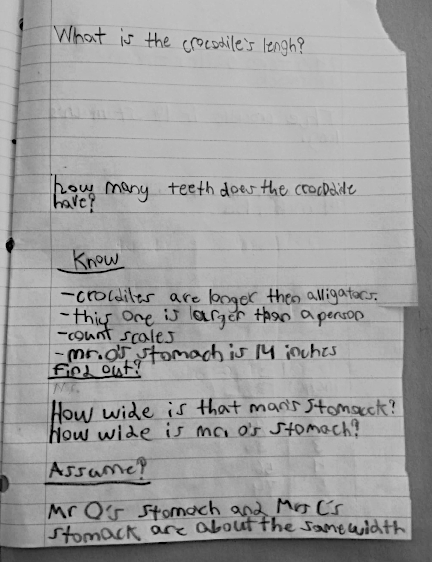 What is the crocodile's lengh?
how many teeth does the crocodile
have?
Know
-crocdiles are longer then alligators.
-this one is larger than a person
-count scales
-mr.O's stomach is 14 inches
Find out?
How wide is that man's stomack?
How wide is mr. o's stomach?
Assume?
Mr O's stomach and Mrs C's
stomack are about the same width